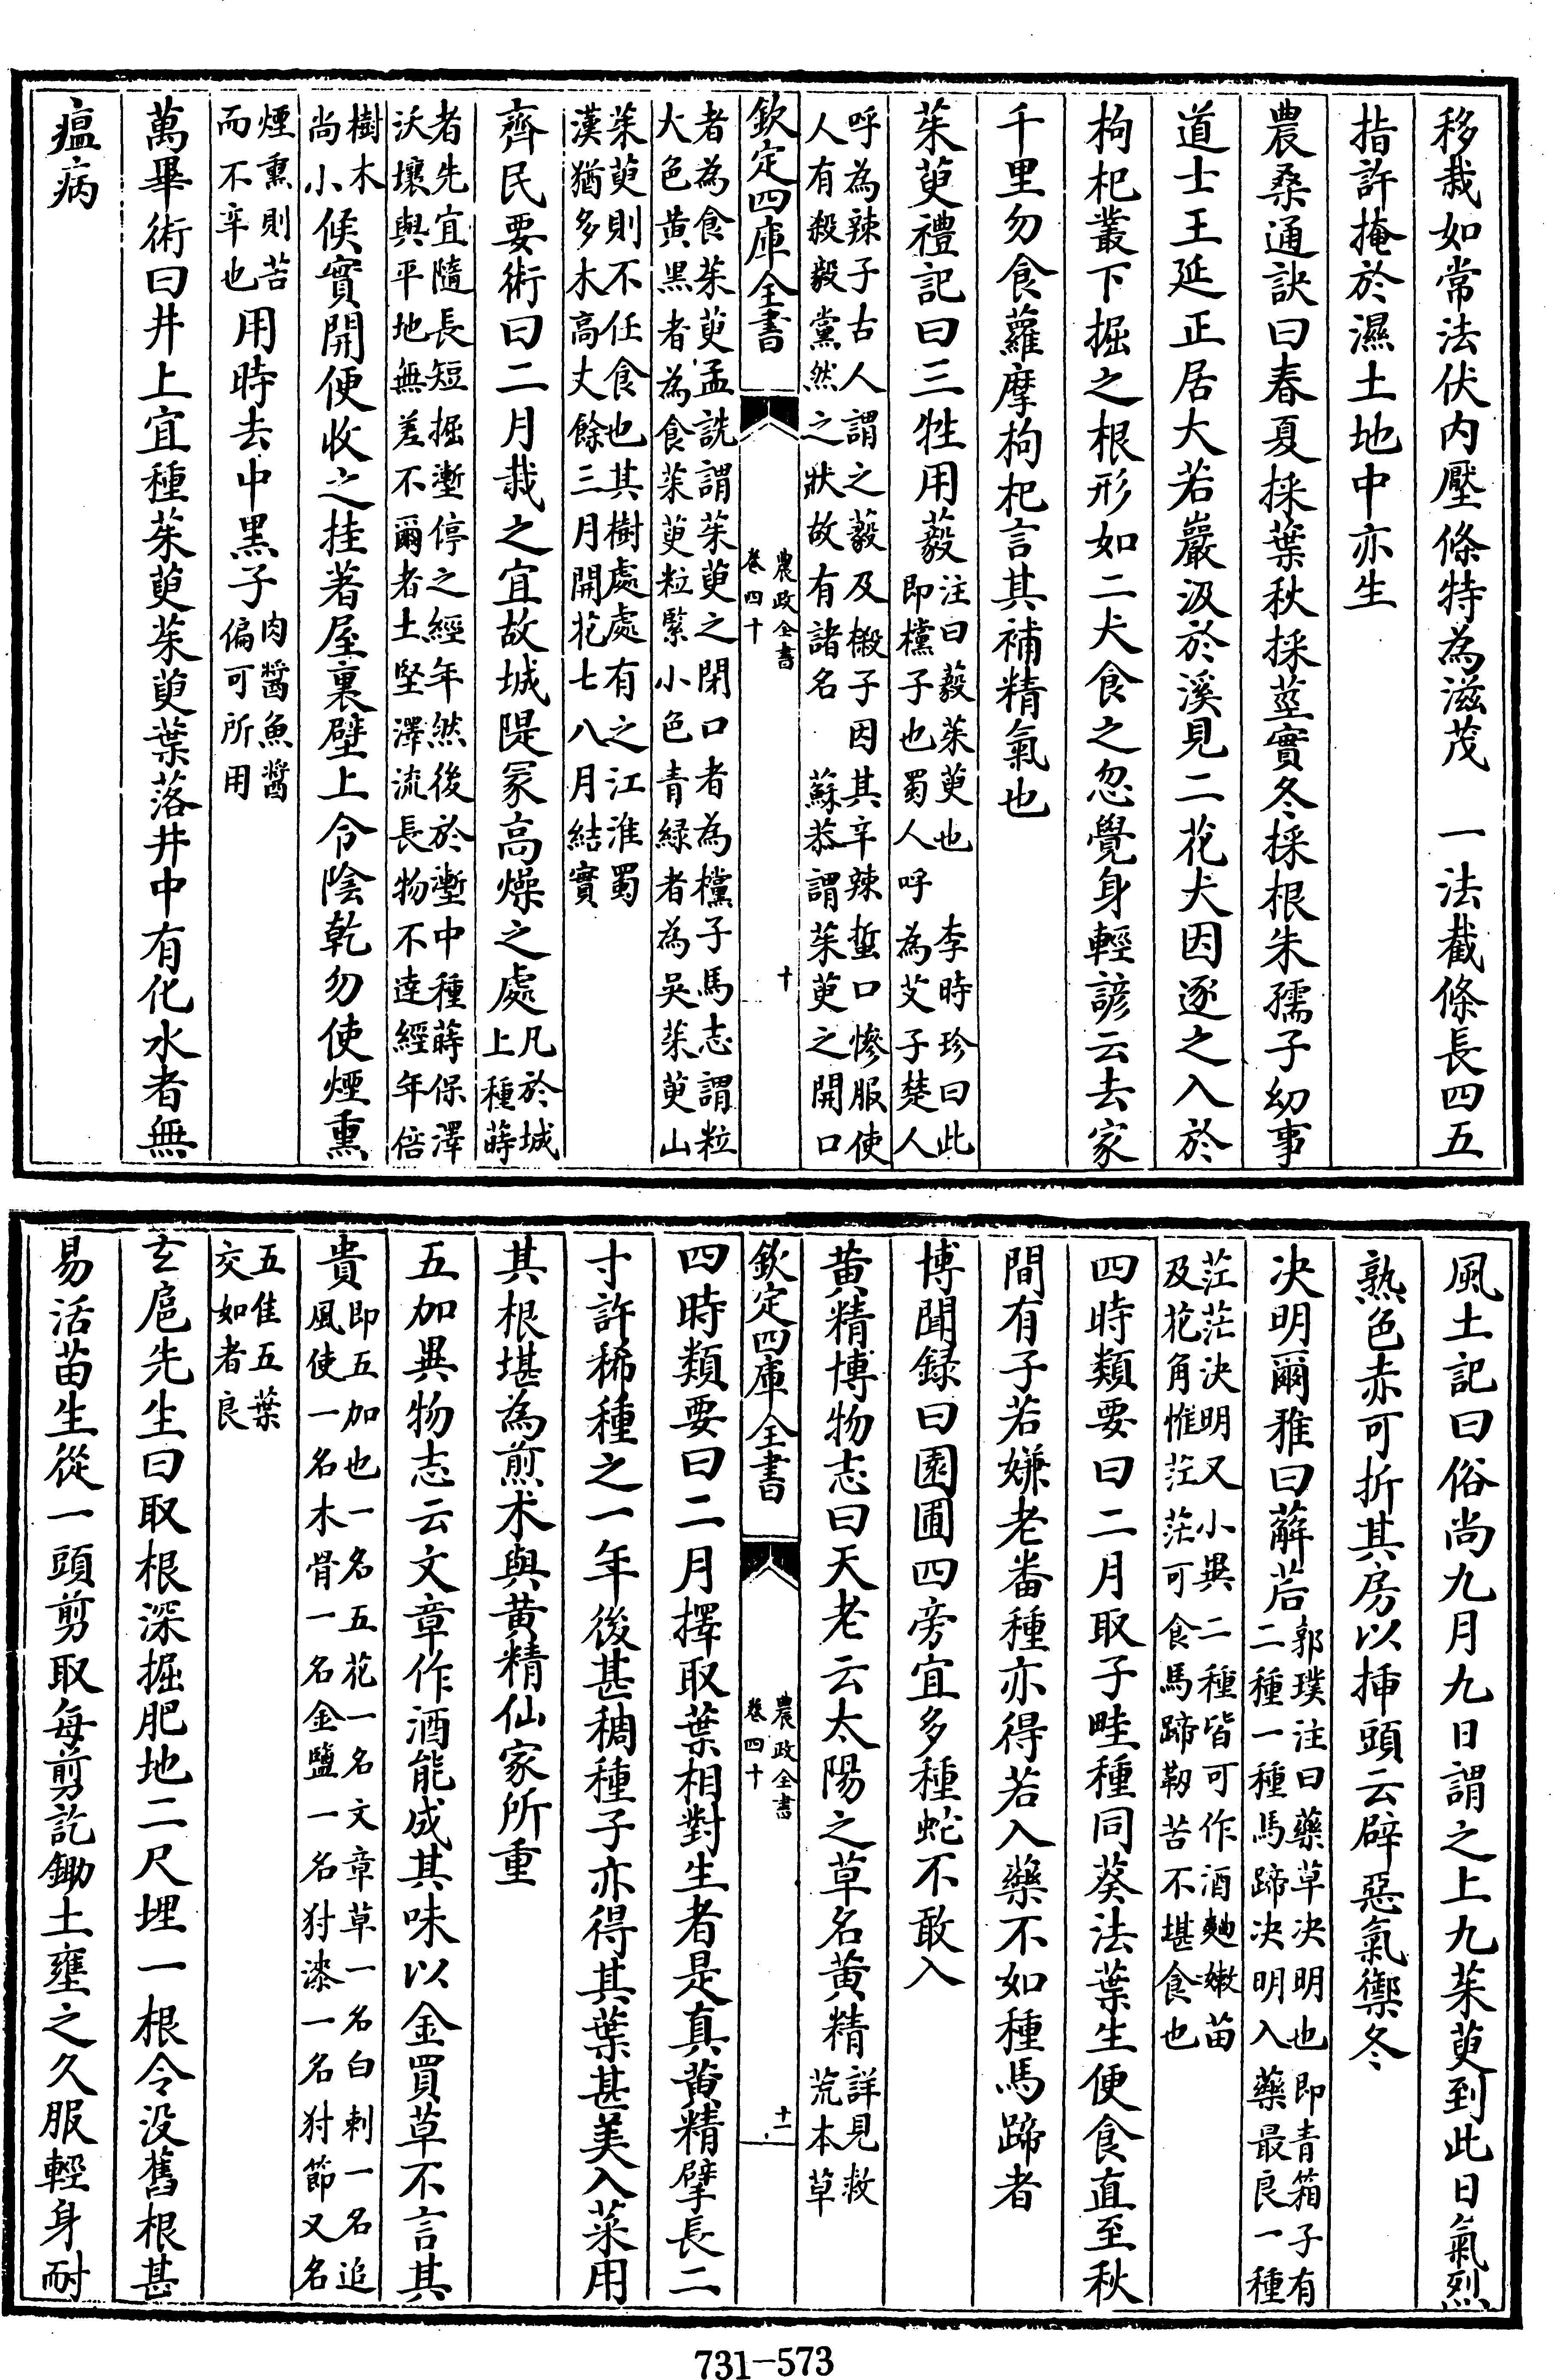 移栽如常法伏内壓條特為滋茂　一法截條長四五
指許掩於濕土地中亦生
農桑通訣曰春夏採葉秋採莖實冬採根朱孺子幼事
道士王延正居大若巖汲於溪見二花犬因逐之入於
枸杞叢下掘之根形如二犬食之忽覺身輕諺云去家
千里勿食蘿摩枸杞言其補精氣也
茱萸禮記曰三牲用藙注曰藙茱萸也　李時珍曰此
即欓子也蜀人呼為艾子楚人
呼為辣子古人謂之藙及樧子因其辛辣蜇口慘服使
人有殺毅黨然之狀故有諸名　蘇恭謂茱萸之開口
欽定四庫全書
農政全書
卷四十
十
者為食茱萸孟詵謂茱萸之閉口者為欓子馬志謂粒
大色黄黑者為食茱萸粒緊小色青緑者為吳茱萸山
茱萸則不任食也其樹處處有之江淮蜀
漢猶多木高丈餘三月開花七八月結實
齊民要術曰二月栽之宜故城隄冡高燥之處凡於城
上種蒔
者先宜隨長短掘壍停之經年然後於壍中種蒔保澤
沃壤與平地無差不爾者土堅澤流長物不逹經年倍
樹木
尚小候實開便收之挂著屋裏壁上令陰乾勿使煙熏
煙熏則苦
而不辛也用時去中黑子肉醬魚醬
偏可所用
萬畢術曰井上宜種茱萸茱萸葉落井中有化水者無
瘟病
風土記曰俗尚九月九日謂之上九茱萸到此日氣烈
熟色赤可折其房以挿頭云辟惡氣禦冬
决明爾雅曰薢茩郭璞注曰藥草决明也即青箱子有
二種一種馬蹄决明入藥最良一種
茳茫决明又小異二種皆可作酒麯嫩苗
及花角惟茳茫可食馬蹄靭苦不堪食也
四時類要曰二月取子畦種同葵法葉生便食直至秋
間有子若嫌老畨種亦得若入藥不如種馬蹄者
博聞録曰園圃四旁宜多種蛇不敢入
黄精博物志曰天老云太陽之草名黄精詳見救
荒本草
欽定四庫全書
農政全書
卷四十
十一
四時類要曰二月擇取葉相對生者是真黄精擘長二
寸許稀種之一年後甚稠種子亦得其葉甚美入菜用
其根堪為煎术與黄精仙家所重
五加異物志云文章作酒能成其味以金買草不言其
貴即五加也一名五花一名文章草一名白刺一名追
風使一名木骨一名金鹽一名犲漆一名犲節又名
五佳五葉
交如者良
玄扈先生曰取根深掘肥地二尺埋一根令没舊根甚
易活苗生從一頭剪取每剪訖鋤土壅之久服輕身耐
731-573